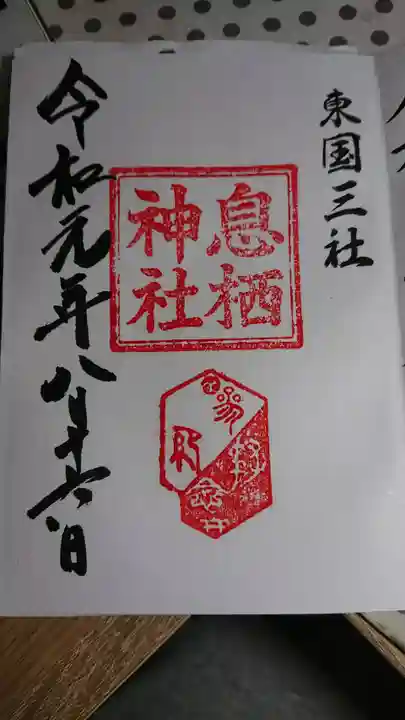 東国三社
息栖
神社
令和元年八月十六日